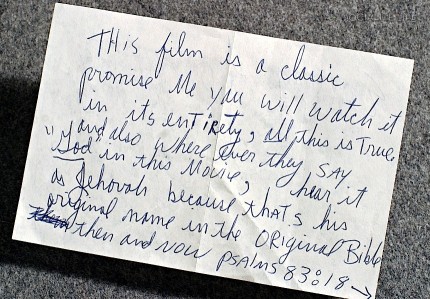 THis film is a classic
promise Me you will watch it
in its entIRety, all this is True,
and also where ever they SAY
"God" in this Movie, hear it
as Jehovah because thats his
original name in the ORiginal Bible
then and NOW PSAlms 83:18 →